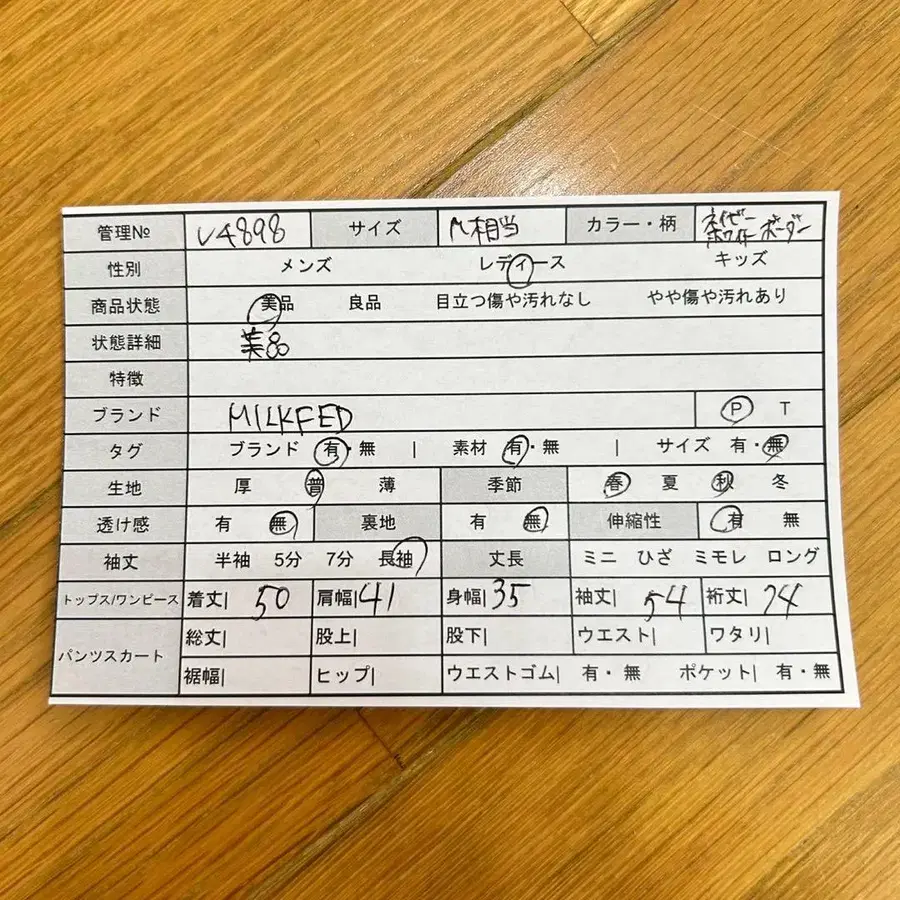 管理№ V4898 サイズ M相当 カラー・柄 ネイビー ホワイト ボーダー
性別 メンズ レディース キッズ
商品状態 美品 良品 目立つ傷や汚れなし やや傷や汚れあり
状態詳細 美品
特徴
ブランド MILKFED P T
タグ ブランド 有・無 | 素材 有・無 | サイズ 有・無
生地 厚 普 薄 季節 春 夏 秋 冬
透け感 有 無 裏地 有 無 伸縮性 有 無
袖丈 半袖 5分 7分 長袖 丈長 ミニ ひざ ミモレ ロング
トップス/ワンピース 着丈| 50 肩幅| 41 身幅| 35 袖丈| 54 裄丈| 74
パンツスカート 総丈| 股上| 股下| ウエスト| ワタリ|
裾幅| ヒップ| ウエストゴム| 有・無 ポケット| 有・無